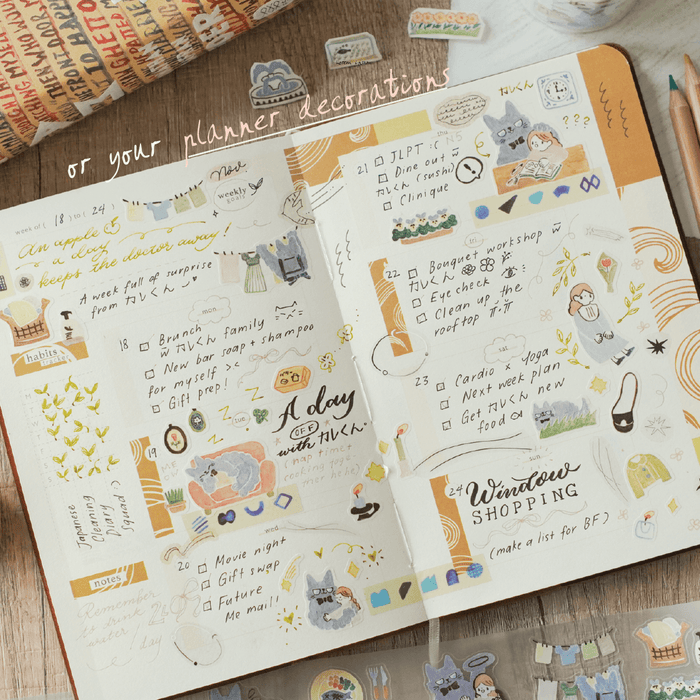 or your planner decorations
Nov.
weekly
GOALS
week of ( 18 ) to ( 24 )
An apple
a day
keeps the doctor away!
A week full of surprise
from カレくん
habits
Japanese
Cleaning
Diary
Squad
notes
Remember
to drink
water!
/ day
mon
18 □ Brunch
w カレくん family
□ New bar soap + shampoo
for myself ><
□ Gift prep!
tue
19
A day
OFF
with カレくん
(nap time +
wed
20
□ Movie night
□ Gift swap
□ Future
Me mail!
thu
21 □ JLPT
□ Dine out w
カレくん (sushi)
□ Clinique
カレくん
???
fri
22 □ Bouquet workshop w
カレくん
□ Eye check
□ Clean up the
rooftop
sat
23 □ Cardio x yoga
□ Next week plan
□ Get カレくん new
food
sun
24 Window
SHOPPING
(make a list for BF)